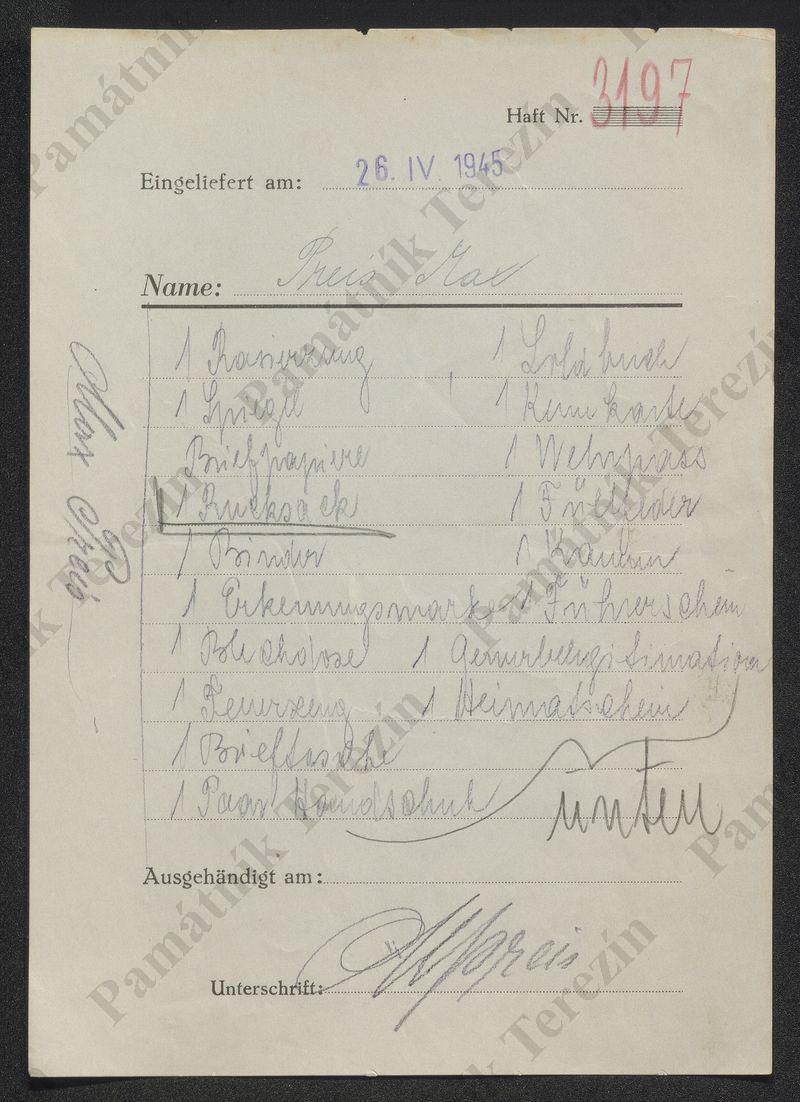 Haft Nr. 3197
Eingeliefert am: 26. IV. 1945
Name: Preis Max
1 Rasierzeug
1 Spiegel
Briefpapiere
1 Rucksack
1 Binder
1 Erkennungsmarke
1 Blechdose
1 Feuerzeug
1 Brieftasche
1 Paar Handschuh
1 Soldbuch
1 Kennkarte
1 Wehrpass
1 Füllfeder
1 Führerschein
1 Gewerbelegitimation
1 Heimatschein
unten
Max Preis
Ausgehändigt am:
Unterschrift: MPreis
Památník Terezín